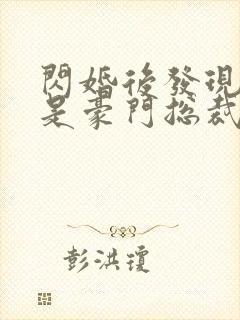 閃婚後發現
是豪門總裁
彭洪瓊